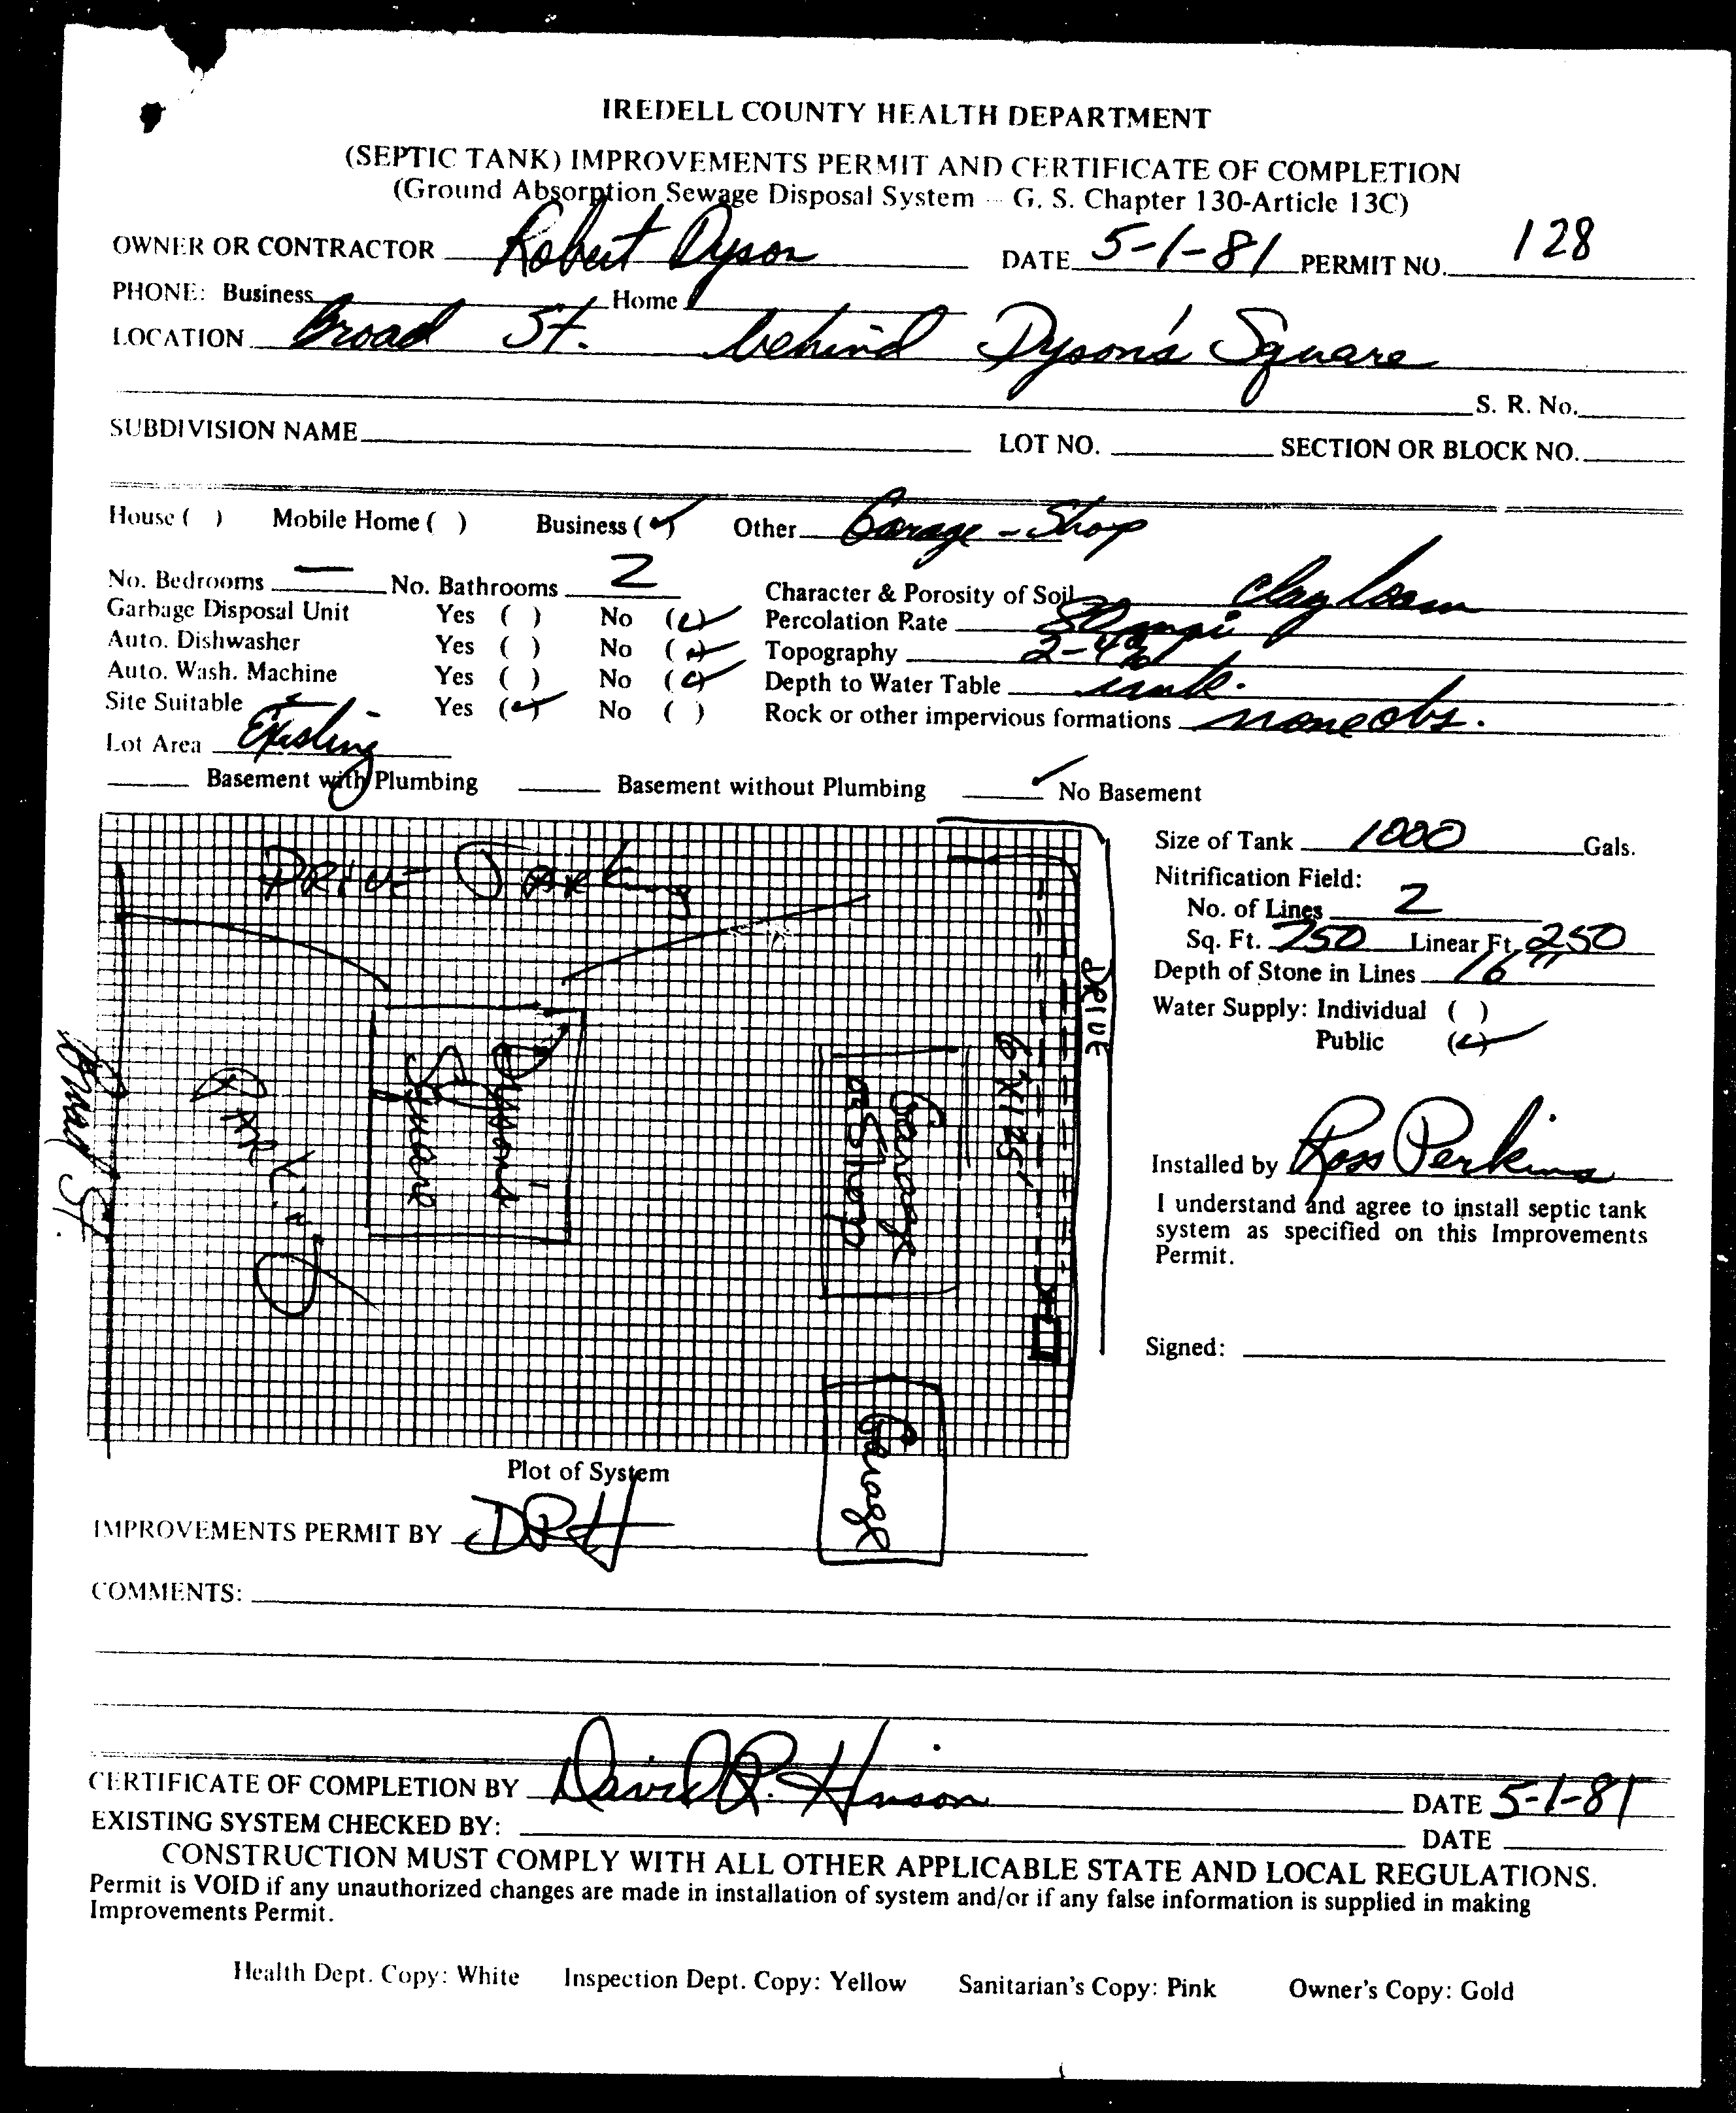 IREDELL COUNTY HEALTH DEPARTMENT
(SEPTIC TANK) IMPROVEMENTS PERMIT AND CERTIFICATE OF COMPLETION
(Ground Absorption Sewage Disposal System -- G. S. Chapter 130-Article 13C)
OWNER OR CONTRACTOR Robert Dyson DATE 5-1-81 PERMIT NO. 128
PHONE: Business Home
LOCATION Broad St. behind Dyson's Square
S. R. No.
SUBDIVISION NAME LOT NO. SECTION OR BLOCK NO.
House ( ) Mobile Home ( ) Business (✓) Other Garage - Shop
No. Bedrooms — No. Bathrooms 2 Character & Porosity of Soil Clay Loam
Garbage Disposal Unit Yes ( ) No (✓) Percolation Rate 30 mpi
Auto. Dishwasher Yes ( ) No (✓) Topography 2-4%
Auto. Wash. Machine Yes ( ) No (✓) Depth to Water Table unk.
Site Suitable Yes (✓) No ( ) Rock or other impervious formations none obs.
Lot Area Existing
Basement with Plumbing Basement without Plumbing ✓ No Basement
Size of Tank 1000 Gals.
Nitrification Field:
No. of Lines 2
Sq. Ft. 750 Linear Ft. 250
Depth of Stone in Lines 16"
Water Supply: Individual ( )
Public (✓)
Installed by Ross Perkins
I understand and agree to install septic tank
system as specified on this Improvements
Permit.
Signed:
DRIVE Parking
Broad St.
Parking
Dyson's
Square
Garage
or Shop
6'X125'
DRIVE
Garage
Plot of System
IMPROVEMENTS PERMIT BY DRH
COMMENTS:
CERTIFICATE OF COMPLETION BY David R. Hinson DATE 5-1-81
EXISTING SYSTEM CHECKED BY: DATE
CONSTRUCTION MUST COMPLY WITH ALL OTHER APPLICABLE STATE AND LOCAL REGULATIONS.
Permit is VOID if any unauthorized changes are made in installation of system and/or if any false information is supplied in making
Improvements Permit.
Health Dept. Copy: White Inspection Dept. Copy: Yellow Sanitarian's Copy: Pink Owner's Copy: Gold